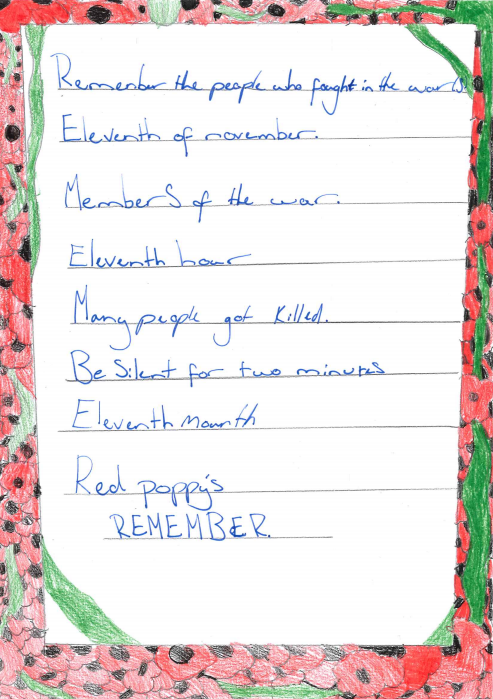 Remember the people who fought in the wars.
Eleventh of november.
MemberS of the war.
Eleventh hour
Many people got killed.
Be Silent for two minutes
Eleventh mounth
Red poppy's
REMEMBER.